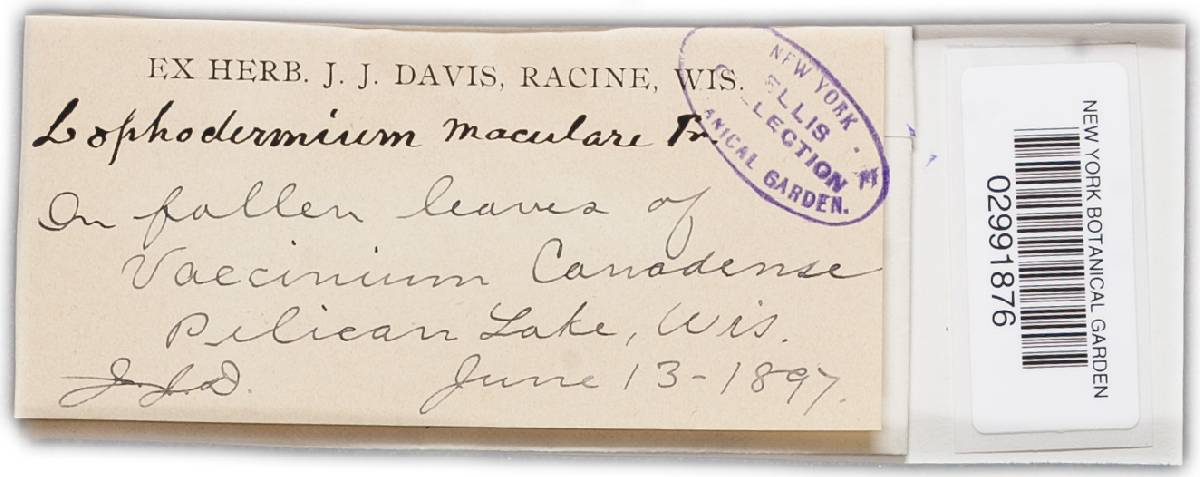 EX HERB. J. J. DAVIS, RACINE, WIS.
Lophodermium maculare
On fallen leaves of
Vaccinium Canadense
Pelican Lake, Wis.
J.J.D. June 13-1897.
NEW YORK
ELLIS
LLECTION
ANICAL GARDEN.
NEW YORK BOTANICAL GARDEN
02991876